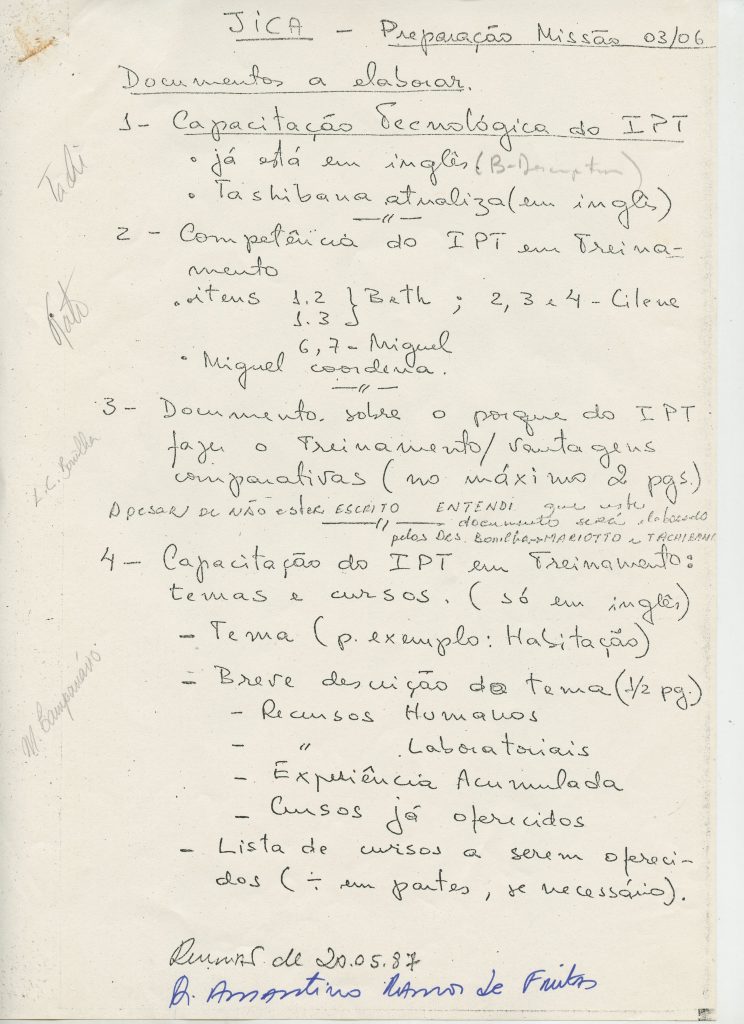 JICA - Preparação Missão 03/06
Documentos a elaborar.
1 - Capacitação Tecnológica do IPT
• já está em inglês (B-Description)
• Tashibana atualiza (em inglês)
—//—
2 - Competência do IPT em Treina-
mento
• itens 1.2 } Beth ; 2, 3 e 4 - Cilene
1.3
6, 7 - Miguel
• Miguel coordena.
—//—
3 - Documento sobre o porque do IPT
fazer o Treinamento/vantagens
comparativas (no máximo 2 pgs.)
APESAR DE NÃO ESTAR ESCRITO ENTENDI que este
—//— documento será elaborado
pelos Drs. Bonilha, MARIOTTO e TACHIBANA
4 - Capacitação do IPT em Treinamento:
temas e cursos. (só em inglês)
- Tema (p. exemplo: Habitação)
- Breve descrição do tema (1/2 pg.)
- Recursos Humanos
- " Laboratoriais
- Experiência Acumulada
- Cursos já oferecidos
- Lista de cursos a serem ofereci-
dos (÷ em partes, se necessário).
Tachi
L.C. Bonilha
M. Campanário
Reunião de 20.05.87
Dr. Ramos de Freitas